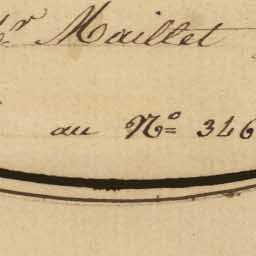 Mr Maillet
au No 346